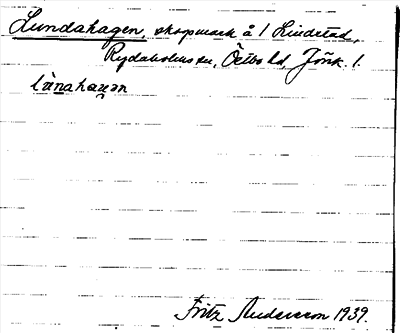 Lundahagen, skogsmark å 1 Lindstad,
Rydaholms sn, Östbo hd, Jönk. l.
lùnahagən
Fritz Andersson 1939.